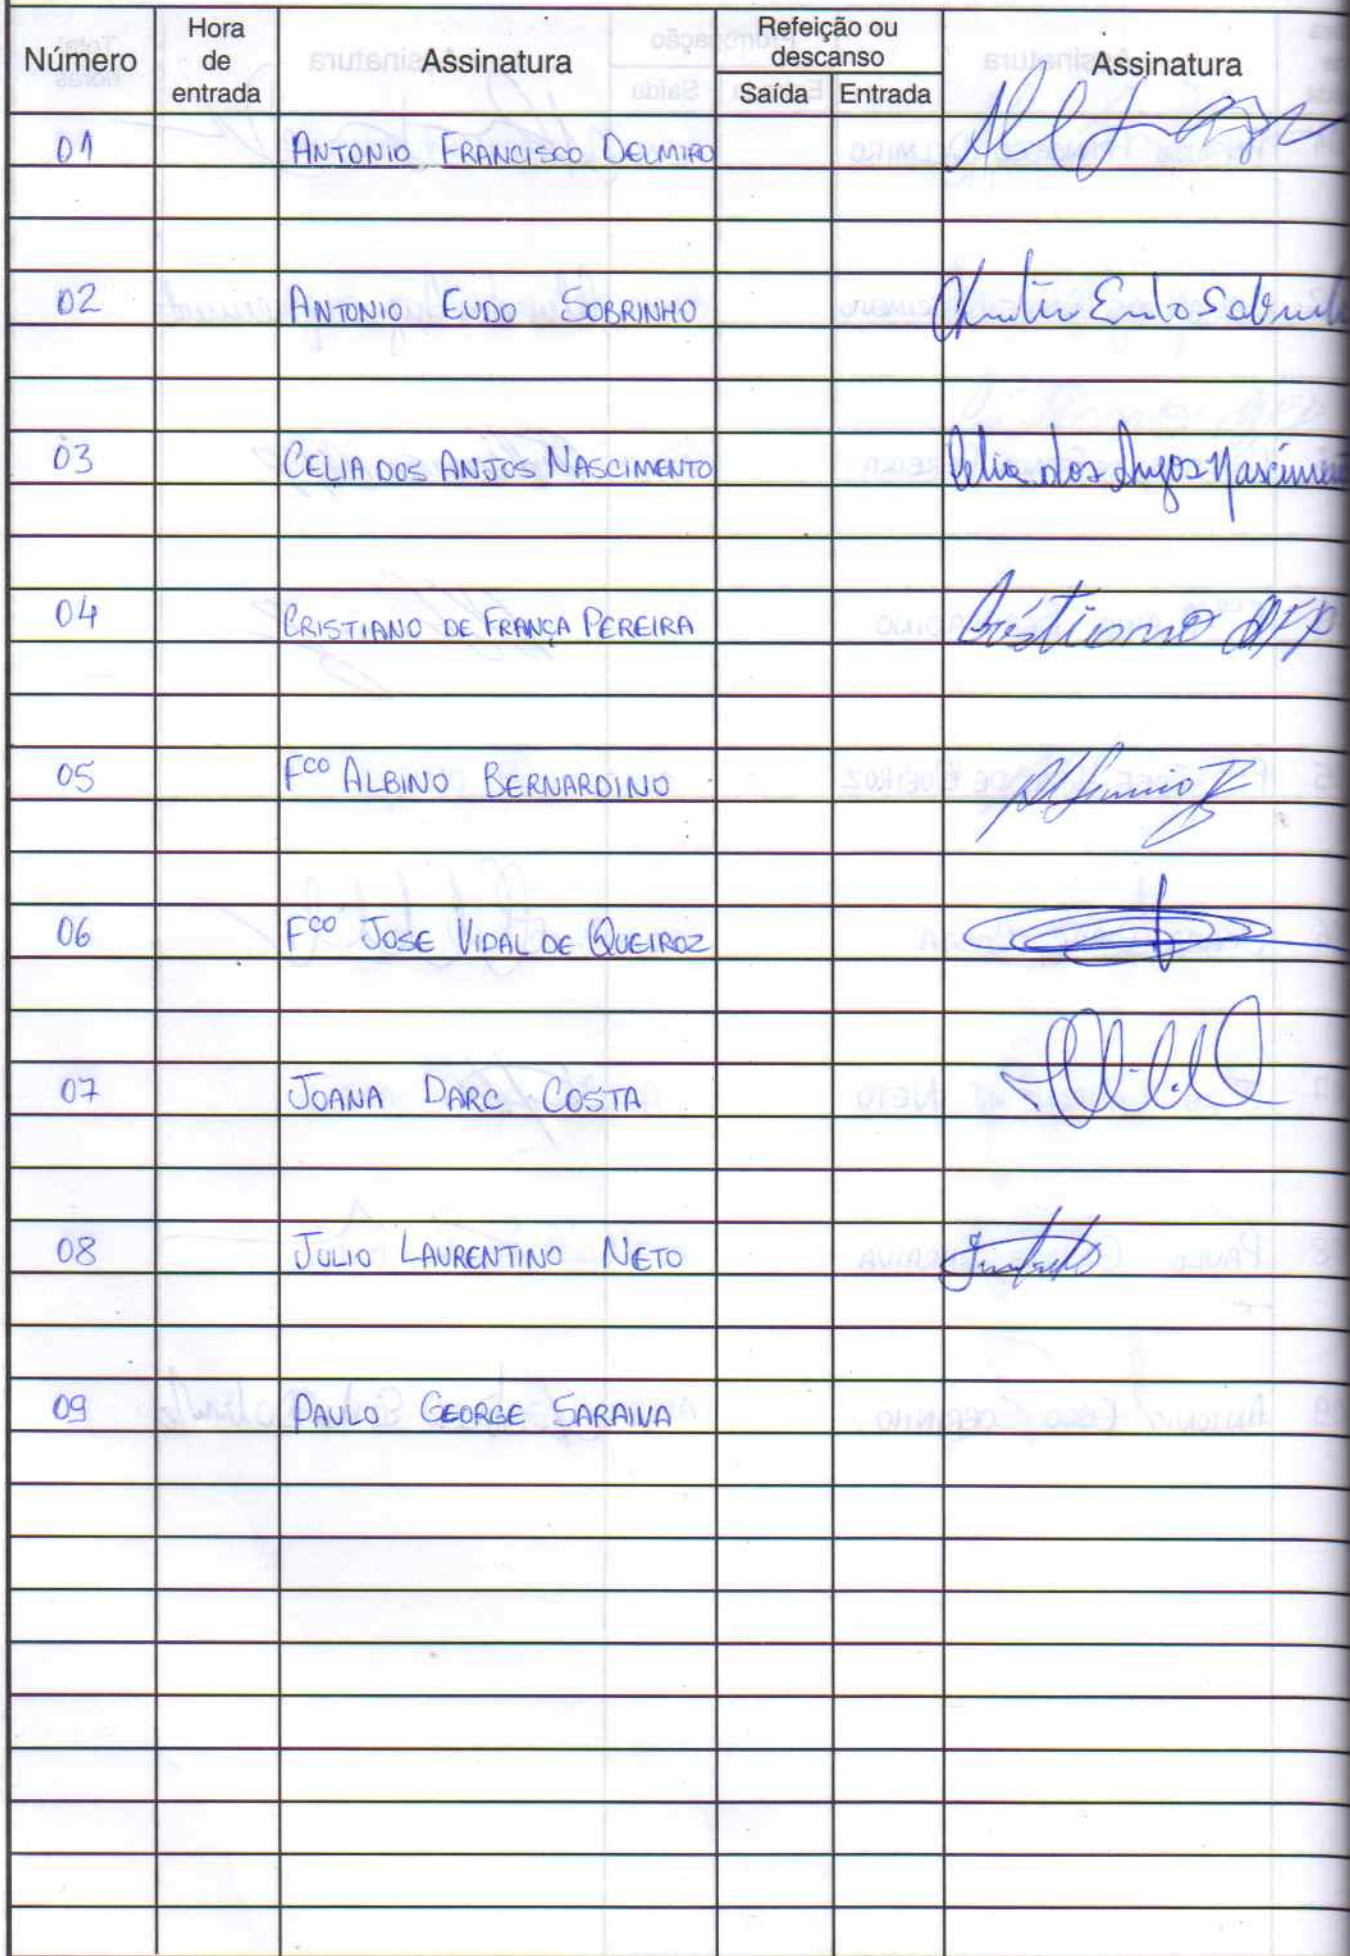 Número
Hora de entrada
Assinatura
Refeição ou descanso
Saída Entrada
Assinatura
01 ANTONIO FRANCISCO DELMIRO
02 ANTONIO EUDO SOBRINHO
03 CELIA DOS ANJOS NASCIMENTO Celia dos Anjos Nascimen
04 CRISTIANO DE FRANÇA PEREIRA Cristiano DFP
05 Fco ALBINO BERNARDINO
06 Fco JOSE VIDAL DE QUEIROZ
07 JOANA DARC COSTA
08 JULIO LAURENTINO NETO
09 PAULO GEORGE SARAIVA